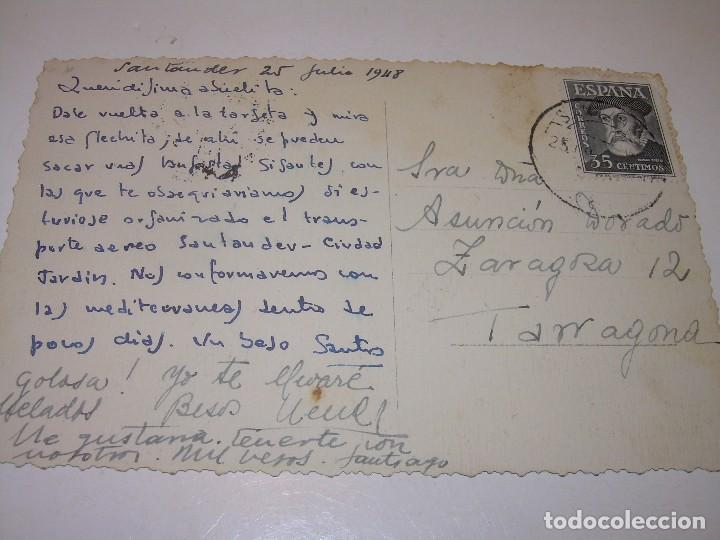 Santander 25 Julio 1948
Queridísima abuelita:
Dale vuelta a la tarjeta y mira
esa flechita, de ahí se pueden
sacar unas langostas gigantes, con
las que te obsequiaríamos si es-
tuviose organizado el trans-
porte aereo Santander - Ciudad
Jardín. Nos conformaremos con
las mediterraneas dentro de
pocos días. Un beso Santos
golosa! Yo te llevaré
Helados Besos
Me gustaria tenerte con
nosotros. Mil vesos. Santiago
ESPAÑA
CORREOS
35 CENTIMOS
25
Sra Dña
Asunción Dorado
Zaragoza 12
Tarragona
todocoleccion
todocoleccion.net